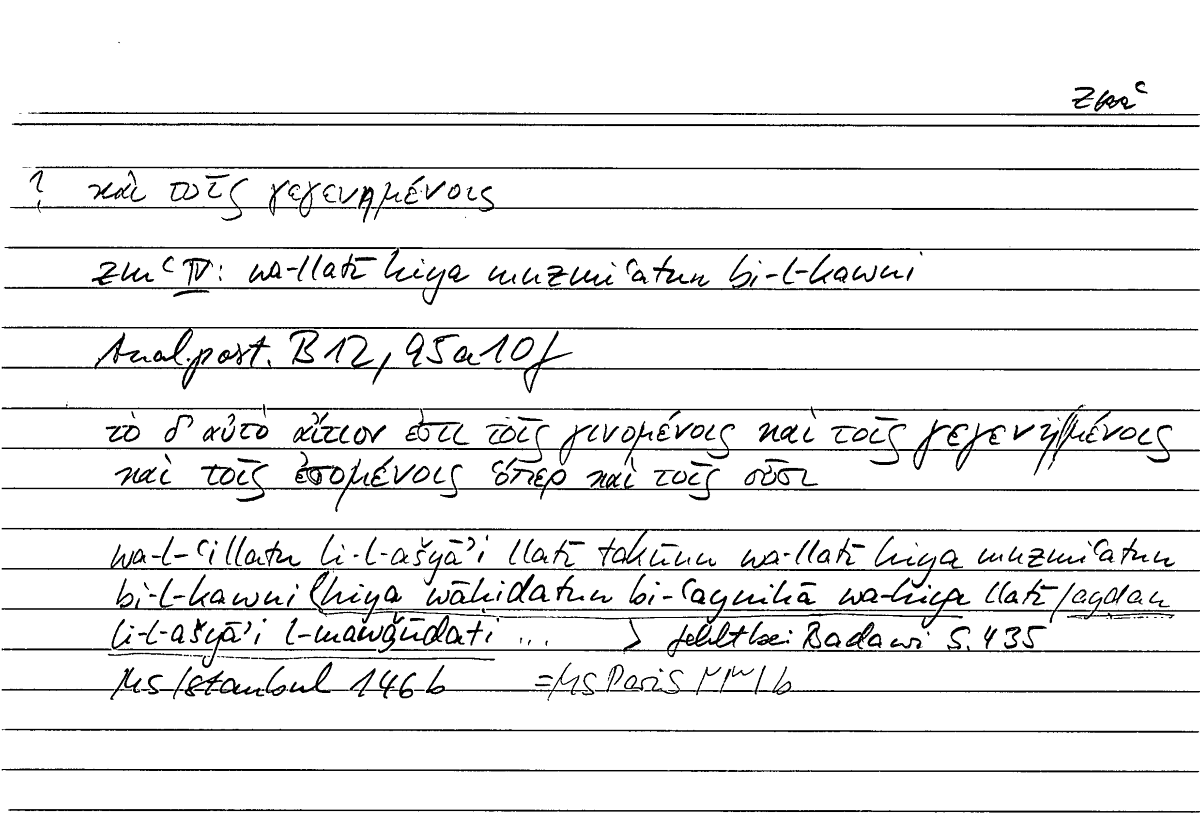 zmʿ
? καὶ τοῖς γεγενημένοις
zmʿ IV: wa-llatī hiya muzmiʿatun bi-l-kawni
Anal.post. B12, 95a10f
τὸ δ' αὐτὸ αἴτιον ἐστι τοῖς γινομένοις καὶ τοῖς γεγενημένοις
καὶ τοῖς ἐσομένοις ὅπερ καὶ τοῖς οὖσι
wa-l-ʿillatu li-l-ašyāʾi llatī takūnu wa-llatī hiya muzmiʿatun
bi-l-kawni (hiya wāḥidatun bi-ʿaynihā wa-hiya llatī /ayḍan
li-l-ašyāʾi l-mawǧūdati ... > fehlt bei Badawi S. 435
MS Istanbul 146b =MS Paris